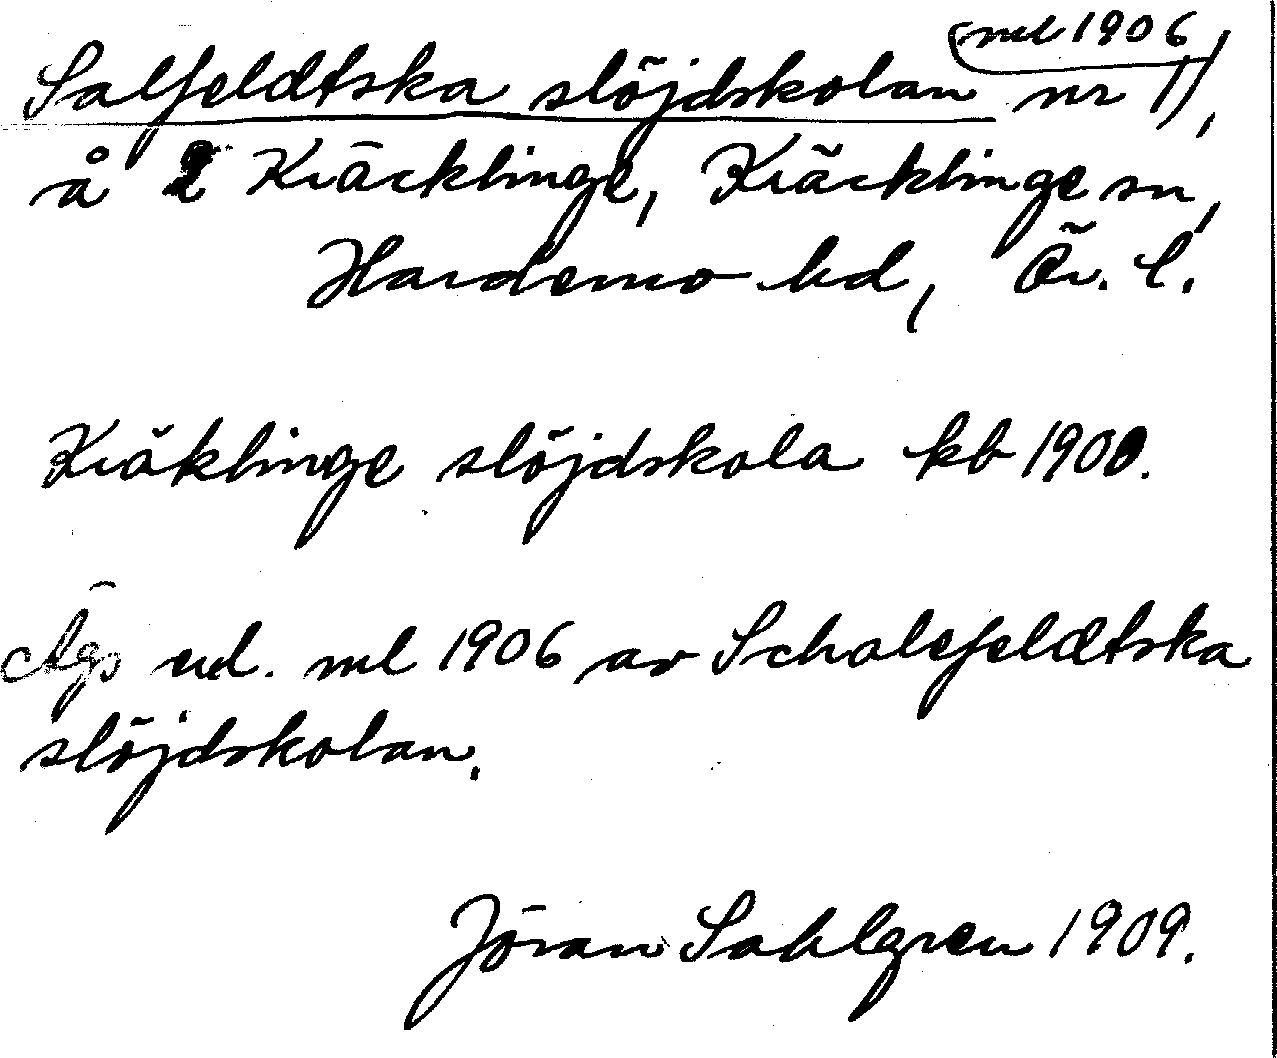 ml 1906
Salfeldtska slöjdskolan nr 1/1,
å 2 Kräcklinge, Kräcklinge sn,
Hardemo hd, Ör. l.
Kräklinge slöjdskola kb 1900.
Ägs enl. ml 1906 av Schalefeldtska
slöjdskolan.
Jöran Sahlgren 1909.